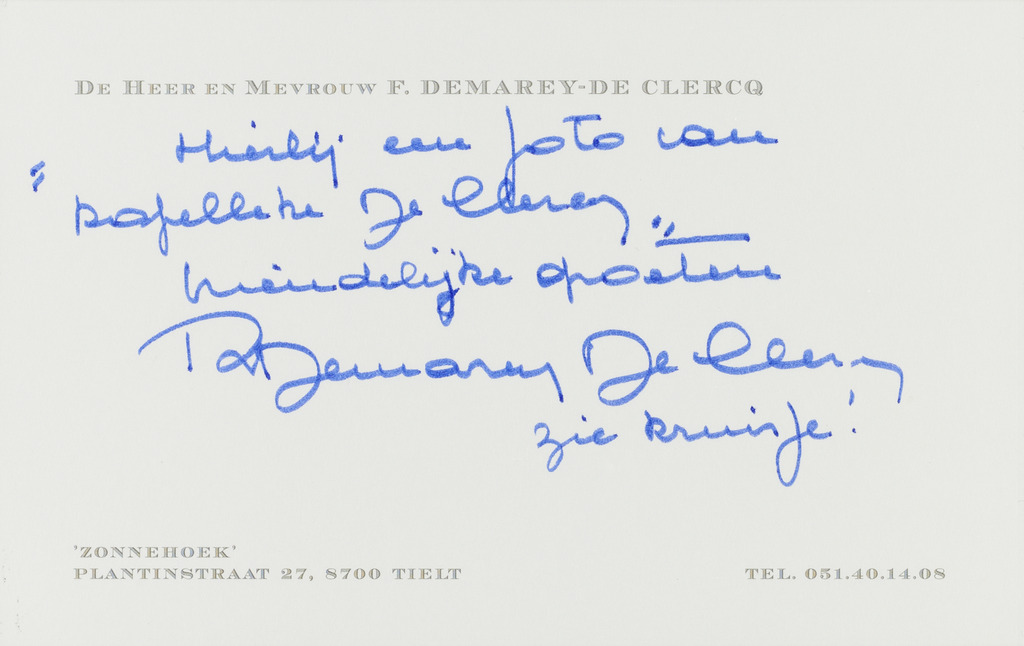 De Heer en Mevrouw F. DEMAREY-DE CLERCQ
Hierbij een foto van
"kapelleke De Clercq"
vriendelijke groeten
Demarey De Clercq
zie kruisje!
'ZONNEHOEK'
PLANTINSTRAAT 27, 8700 TIELT
TEL. 051.40.14.08